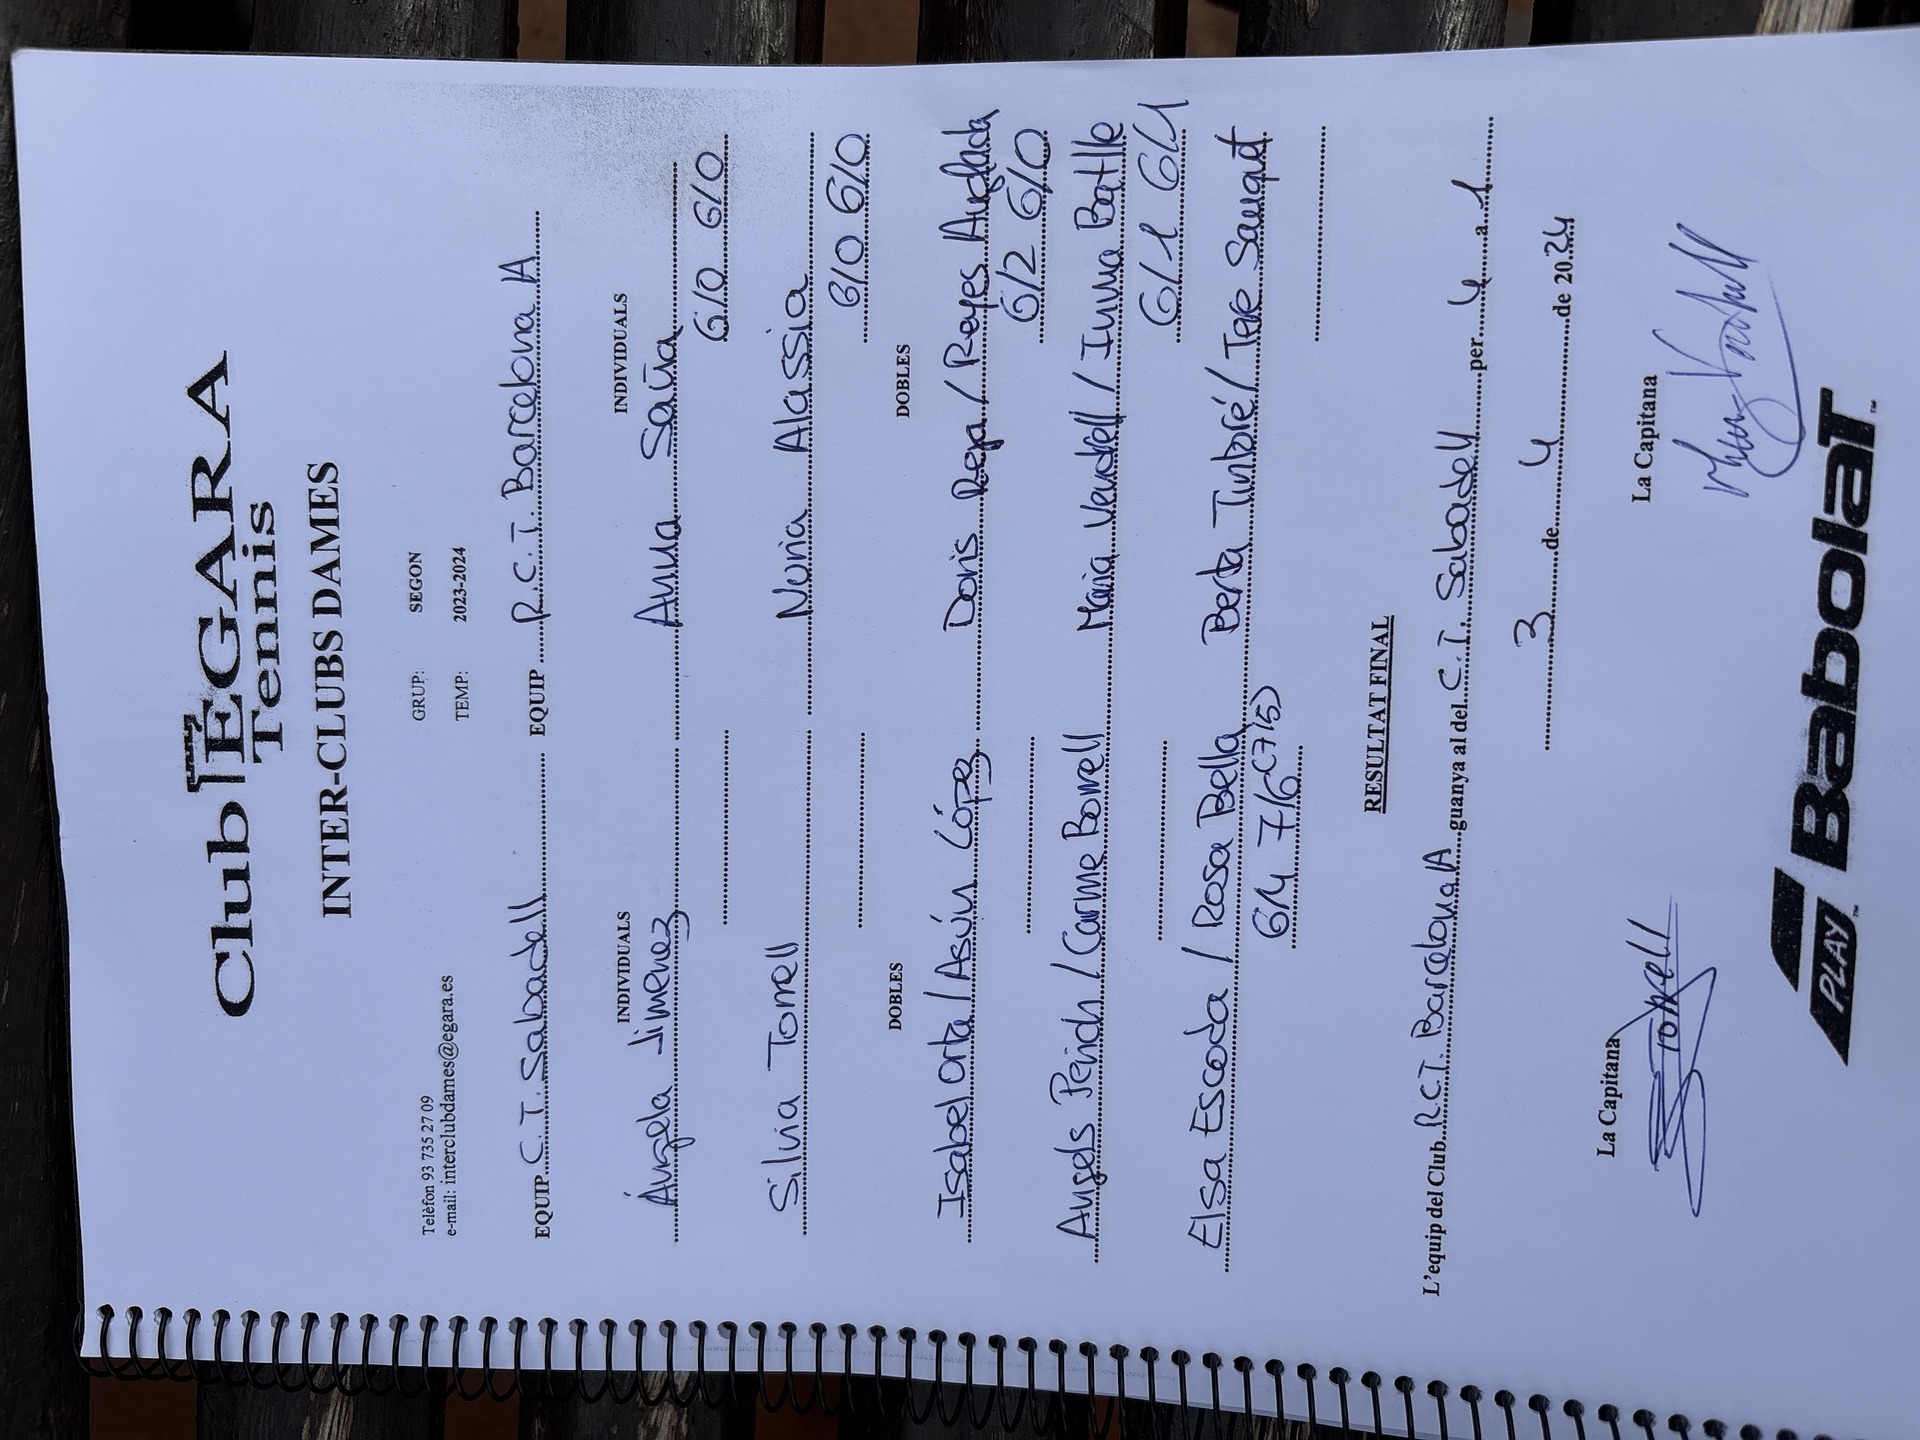 Club EGARA
Tennis
INTER-CLUBS DAMES
Telèfon 93 735 27 09
e-mail: interclubdames@egara.es
GRUP: SEGON
TEMP: 2023-2024
EQUIP C.T. Sabadell EQUIP R.C.T. Barcelona A
INDIVIDUALS INDIVIDUALS
Ángela Jimenez Anna Saña
6/0 6/0
Silvia Torrell Nuria Alassia
6/0 6/0
DOBLES DOBLES
Isabel Orta / Asún López Doris Repa / Reyes Anglada
6/2 6/0
Angels Perich / Carme Borrell Maria Vendrell / Inma Batlle
6/1 6/1
Elsa Escoda / Rosa Bella Berta Tintoré / Tere Sauquet
6/4 7/6 (7/5)
RESULTAT FINAL
L'equip del Club R.C.T. Barcelona A guanya al del C.T. Sabadell per 4 a 1
3 de 4 de 2024
La Capitana La Capitana
STorrell
PLAY Babolat